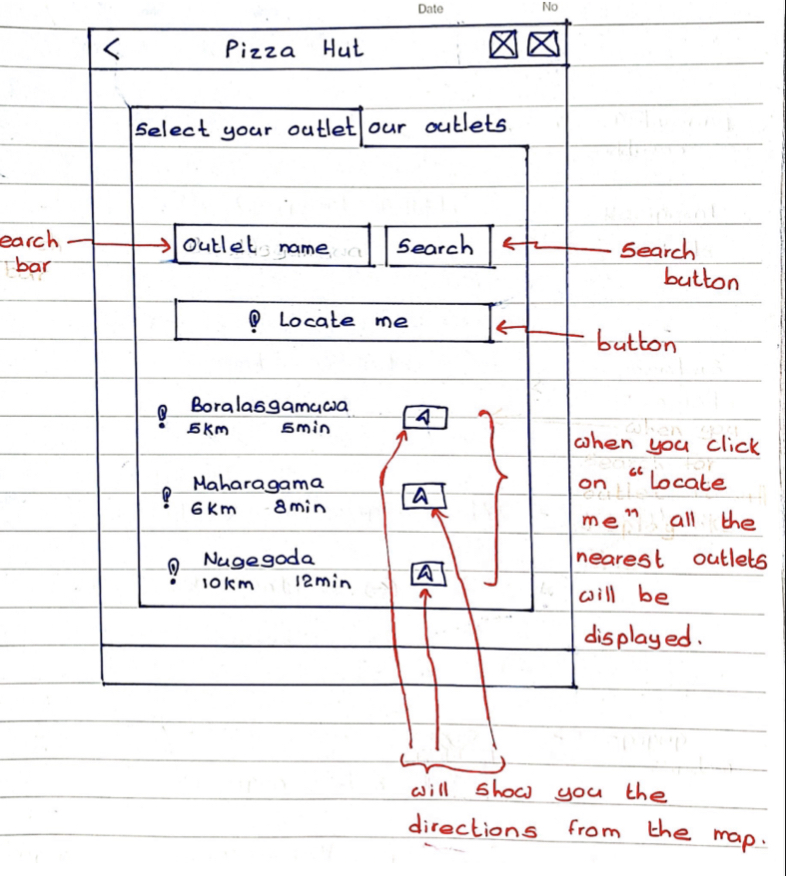 Date No
< Pizza Hut
Select your outlet our outlets
earch bar
Outlet name Search
Search button
Locate me
button
Boralasgamuwa
5km 5min
Maharagama
6km 8min
Nugegoda
10km 12min
when you click
on "Locate
me" all the
nearest outlets
will be
displayed.
will show you the
directions from the map.